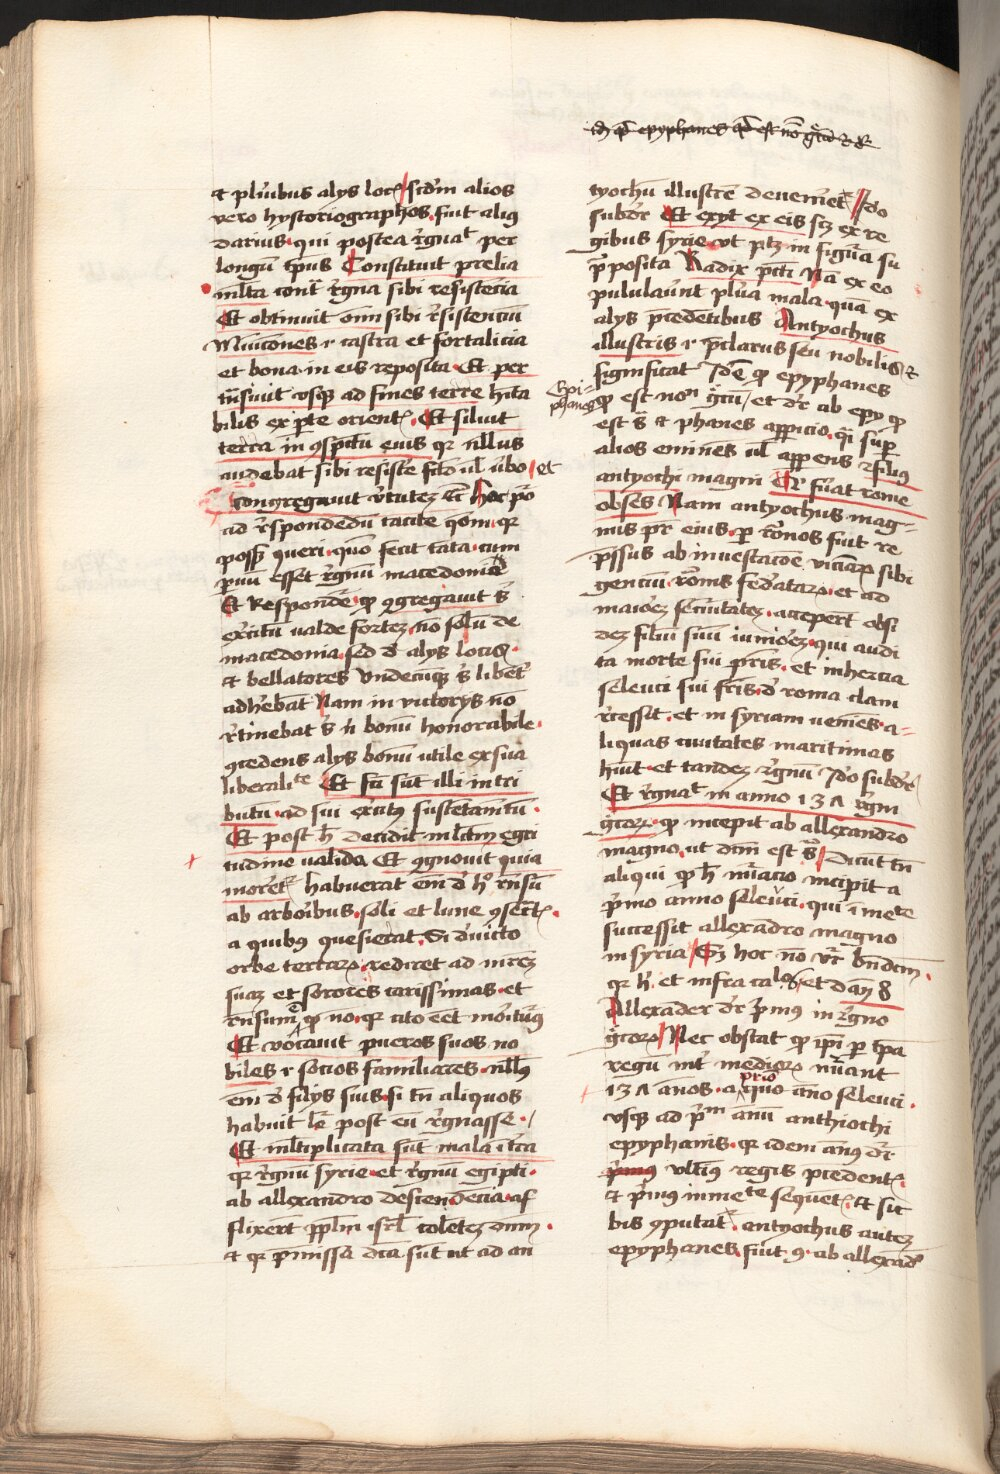 id est epyphanes quod est nomen grecum
et pluribus alys locis scdm alios
vero hystoriographos fuit alius
darius qui postea regnat per
longum tempus Constituit prelia
multa contra regna sibi resistencia
Et obtinuit omnium sibi resistencium
Municiones et castra et fortalicia
et bona in eis reposita Et per
transiuit usque ad fines terre habita
bilis ex parte orientis Et siluit
terra in conspectu eius quia nullus
audebat sibi resistere facto uel verbo et
Congregauit virtutem etc Hoc pro
ad respondendum tacite questioni quia
posset queri quomodo fecit tanta cum
paruum esset regnum macedonie
Et Respondet quod congregauit
exercitum valde fortem non solum de
macedonia sed de alys locis
et bellatores undecumque libenter
adherebant Nam in victorys non
retinebat sibi nisi bonum honorabile
concedens alys bonum utile ex sua
liberalitate Et facti sunt illi in tri
butum ad sui exercitus sustentamentum
Et post hec decidit in lectum egri
tudine valida Et cognouit quia
moreretur habuerat enim de hoc responsum
ab arboribus soli et lune consecratis
a quibus quesierat Si deuicto
orbe terrarum rediret ad matrem
suam et sorores carissimas et
responsum quod non quia cito esset moriturus
Et vocauit pueros suos no
biles et socios familiares nullus
enim de filys suis si tamen aliquos
habuit legitur post eum regnasse
Et multiplicata sunt mala in terra
quia regnum syrie et regnum egipti
ab allexandro descendencia af
flixerunt populum israel colentem deum
et quia premissa dicta sunt ut ad an
tyochum illustrem deueniretur Ideo
subditur Et exyt ex eis scilicet ex re
gibus syrie ut patet in figura su
perposita Radix peccati Nam ex eo
pululauerunt plura mala quam ex
alys precedentibus Antyochus
illustris et preclarus seu nobilis et
significat Idem quod epyphanes
Epi-
phanes
quod est nomen grecum et dicitur ab epy quod
est supra et phanes apparicio quasi super
alios eminens uel apparens filius
antyochi magni Qui fuerat rome
obses Nam antyochus mag-
nus pater eius per romanos fuit re
pressus ab inuestacione vicinarum sibi
gencium romanis federatarum et ad
maiorem securitatem acceperunt obsi
dem filium suum iuniorem qui audi
ta morte sui patris et inhercia
seleuci sui fratris de roma clam
recessit et in syriam ueniens a-
liquas ciuitates maritimas
habuit et tandem regnum Ideo subditur
Et regnat in anno 137 regni
grecorum quod incepit ab allexandro
magno ut dictum est supra Dicunt tamen
aliqui quod hec numeracio incipit a
primo anno seleuci qui immediate
successit allexandro magno
in syria Sed hoc non videtur bene dictum
quia hic et infra et dan 8
Allexander dicitur primus in regno
grecorum Nec obstat quod ipsi per tempora
regum inter mediorum numerant
137 annos a primo anno seleuci
usque ad primum annum anthiochi
epyphanis quia idem annus dicitur
ultimus regis precedentis
et primus immediate sequentis et sic
bis computatur antyochus autem
epyphanes fuit 9 ab allexandro